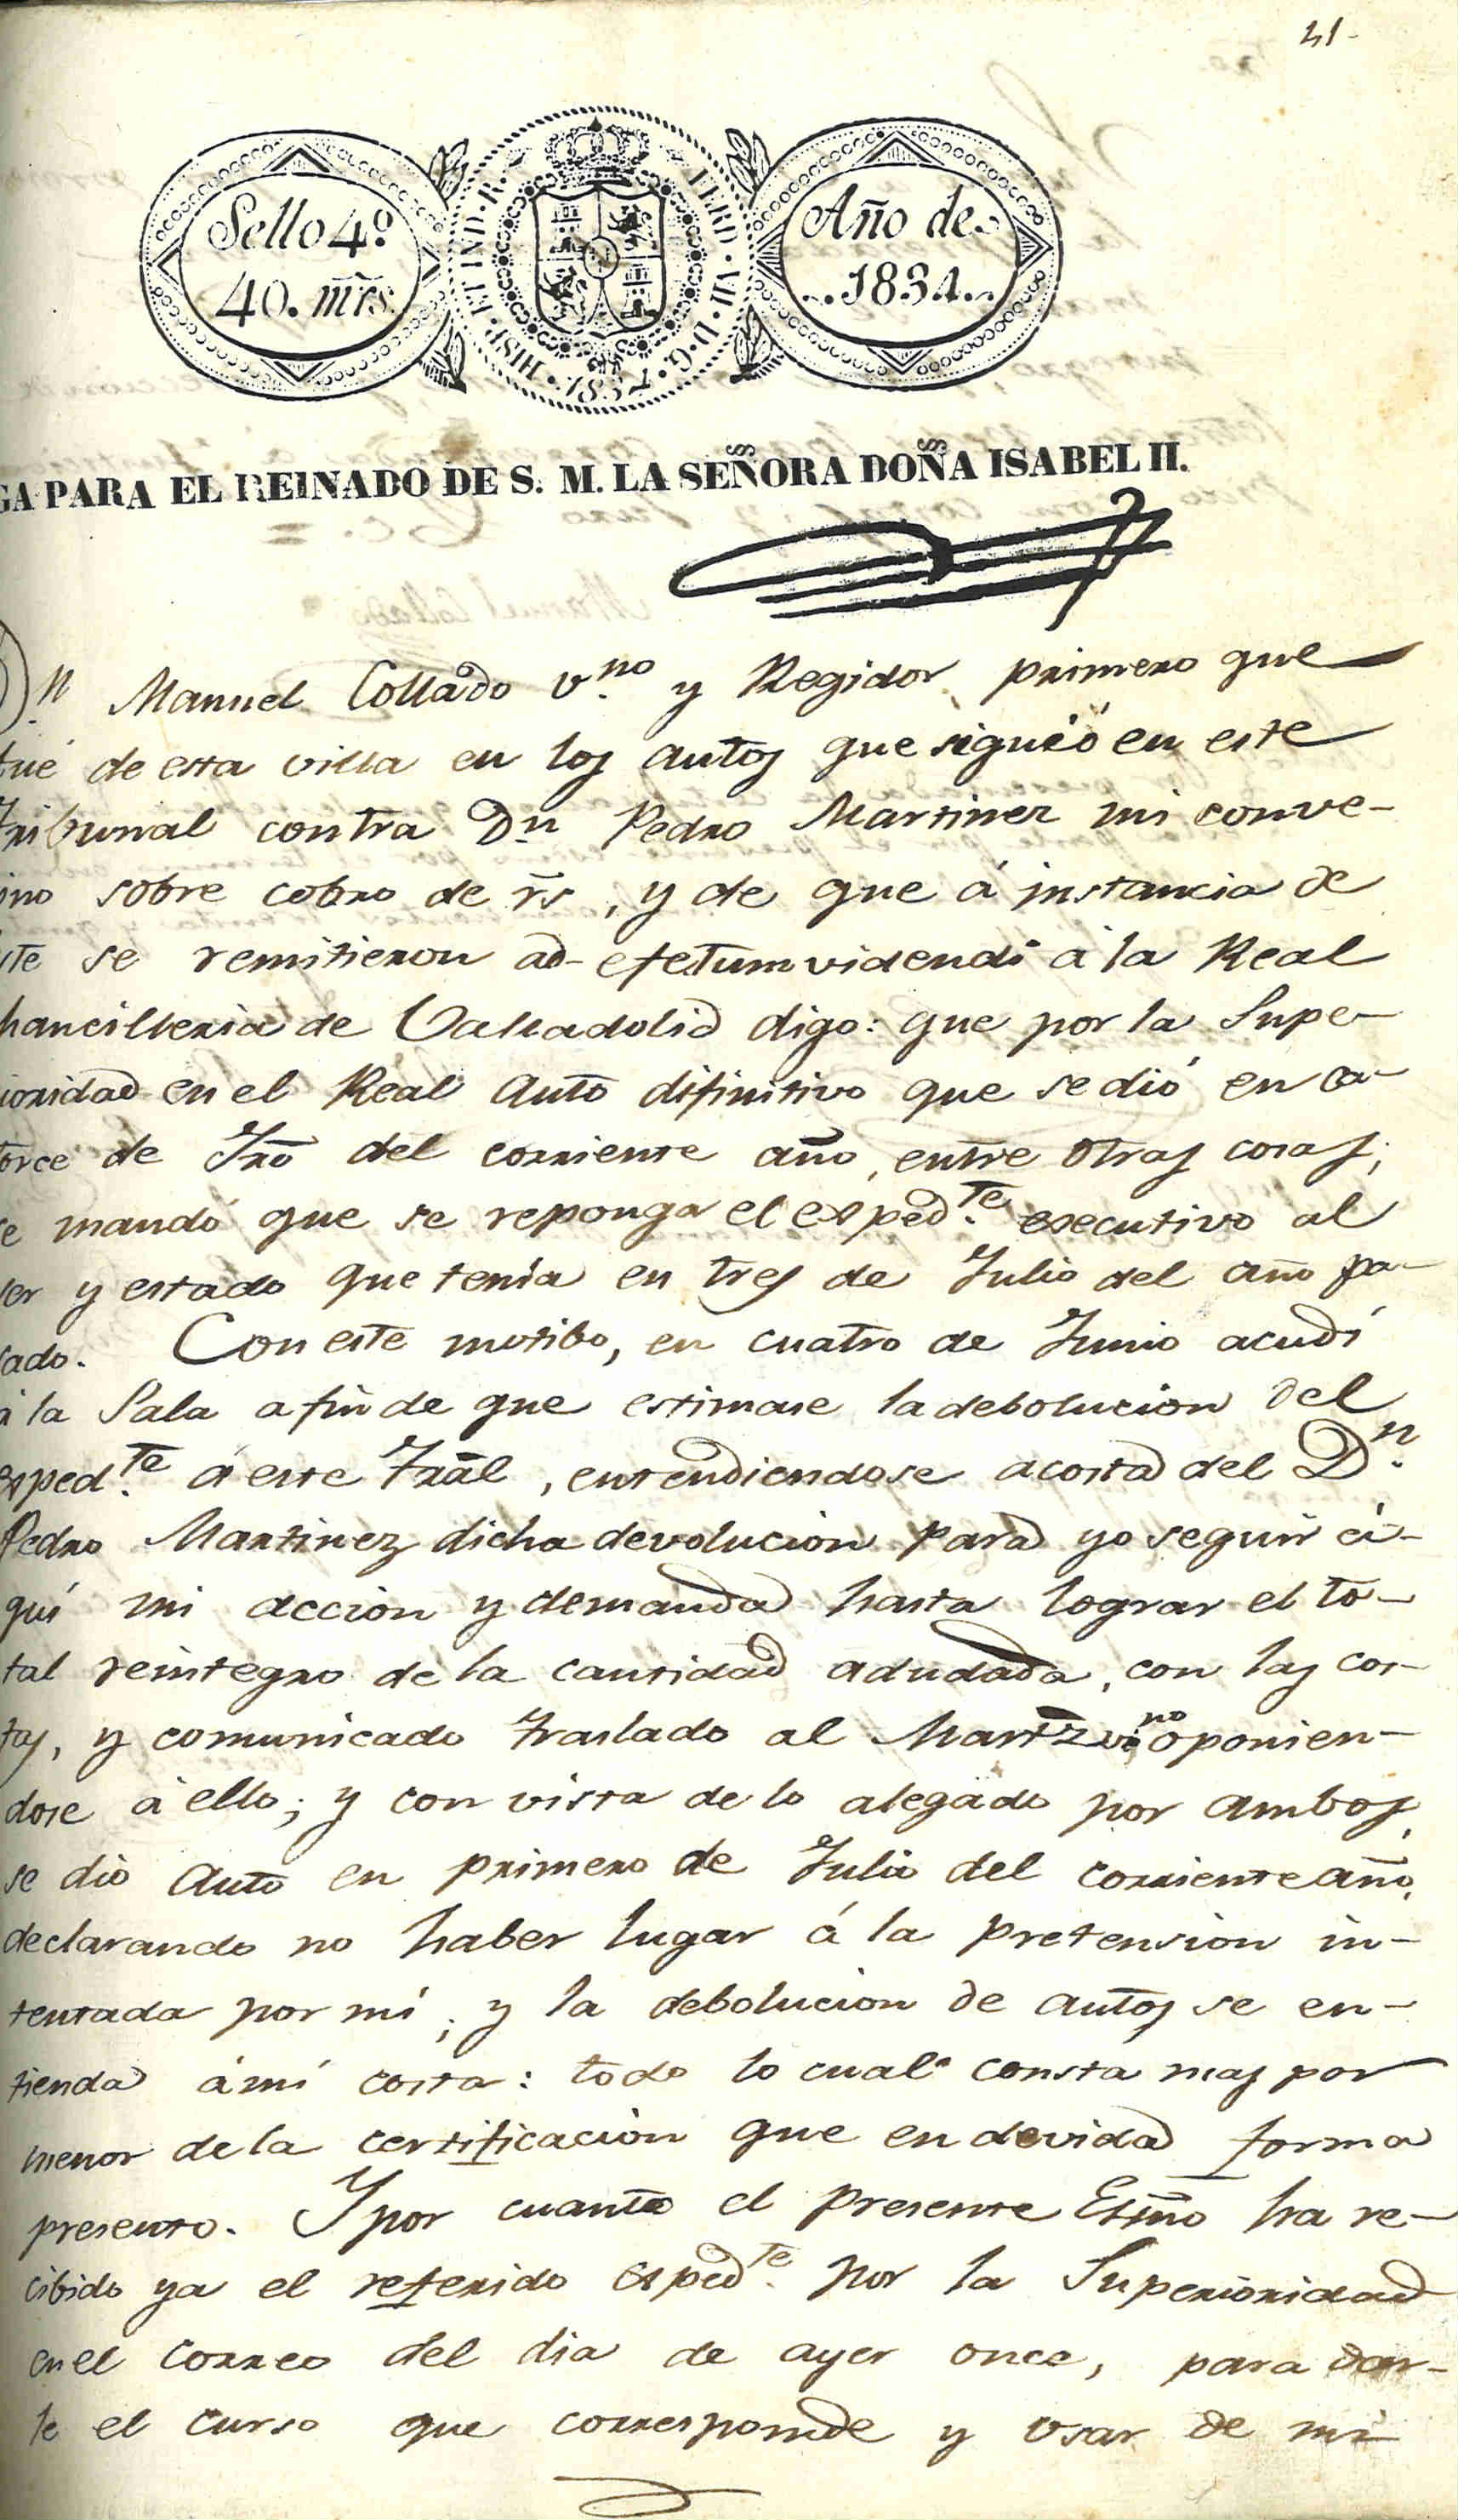 41-
Sello 4º
40. mrs.
HISP · ET IND · R. · FERD · VII · D · G · 1834
Año de
1834.
GA PARA EL REINADO DE S. M. LA SEÑORA DOÑA ISABEL II.
Dn. Manuel Collado v.no y Regidor primero que
fué de esta villa en los autos que siguió en este
Tribunal contra Dn Pedro Martinez mi conve-
ino sobre cobro de r̃s, y de que á instancia de
ste se remitieron ad-efetum videndi á la Real
hancilleria de Valladolid digo: que por la Supe-
rioridad en el Real Auto difinitivo que se dió en ca-
torce de del corriente año, entre otras cosas;
se mandó que se reponga el esped.te esecutivo al
ser y estado que tenia en tres de Julio del año pa-
sado. Con este motibo, en cuatro de Junio acudí
à la Sala a fin de que estimase la debolucion del
esped.te á este Tral, entendiendose acosta del Dn.
Pedro Martinez dicha devolucion para yo seguir a-
quí mi accion y demanda hasta lograr el to-
tal reintegro de la cantidad adudada, con las cos-
tas, y comunicado traslado al Martz vino oponien-
dose á ello; y con vista de lo alegado por ambos,
se dió Auto en primero de Julio del corriente año,
declarando no haber lugar á la pretension in-
tentada por mí, y la debolucion de autos se en-
tienda á mí costa: todo lo cual consta mas por
menor de la certificacion que en devida forma
presento. Y por cuanto el presente Esnõ ha re-
cibido ya el referido esped.te por la Superioridad
en el correo del dia de ayer once, para dar-
le el curso que corresponde y usar de mi